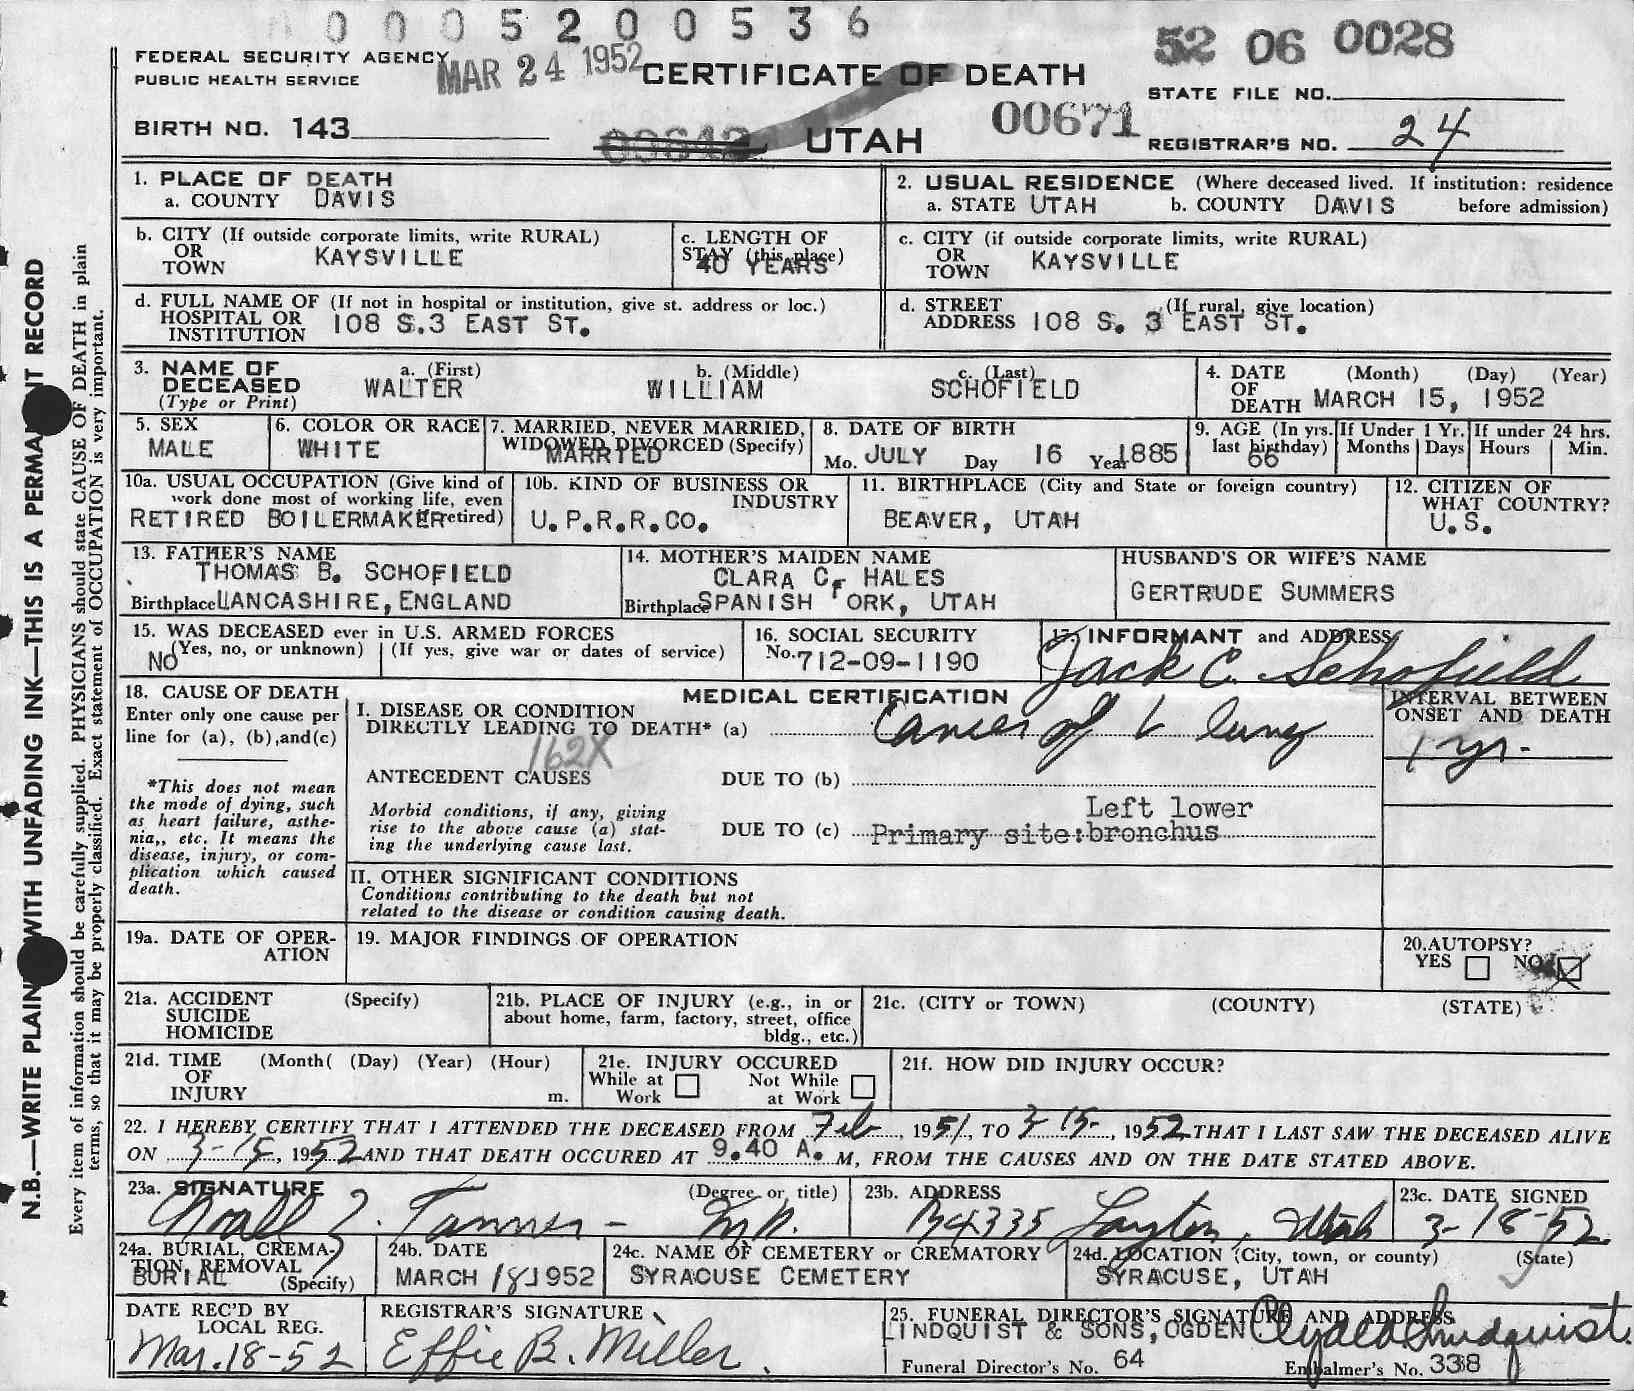 0 0 0 5 2 0 0 5 3 6
52 06 0028
FEDERAL SECURITY AGENCY
PUBLIC HEALTH SERVICE
MAR 24 1952
CERTIFICATE OF DEATH
STATE FILE NO.
BIRTH NO. 143
UTAH
00671
REGISTRAR'S NO. 24
N.B.—WRITE PLAIN WITH UNFADING INK—THIS IS A PERMA T RECORD
Every item of information should be carefully supplied. PHYSICIANS should state CAUSE OF DEATH in plain
terms, so that it may be properly classified. Exact statement of OCCUPATION is very important.
1. PLACE OF DEATH
a. COUNTY DAVIS
2. USUAL RESIDENCE (Where deceased lived. If institution: residence
a. STATE UTAH b. COUNTY DAVIS before admission)
b. CITY (If outside corporate limits, write RURAL)
OR
TOWN KAYSVILLE
c. LENGTH OF
STAY (this place)
40 YEARS
c. CITY (if outside corporate limits, write RURAL)
OR
TOWN KAYSVILLE
d. FULL NAME OF (If not in hospital or institution, give st. address or loc.)
HOSPITAL OR
INSTITUTION 108 S.3 EAST ST.
d. STREET (If rural, give location)
ADDRESS 108 S. 3 EAST ST.
3. NAME OF a. (First) b. (Middle) c. (Last)
DECEASED WALTER WILLIAM SCHOFIELD
(Type or Print)
4. DATE (Month) (Day) (Year)
OF
DEATH MARCH 15, 1952
5. SEX
MALE
6. COLOR OR RACE
WHITE
7. MARRIED, NEVER MARRIED,
WIDOWED DIVORCED (Specify)
MARRIED
8. DATE OF BIRTH
Mo. JULY Day 16 Year 1885
9. AGE (In yrs.
last birthday)
66
If Under 1 Yr.
Months Days
If under 24 hrs.
Hours Min.
10a. USUAL OCCUPATION (Give kind of
work done most of working life, even
if retired)
RETIRED BOILERMAKER
10b. KIND OF BUSINESS OR
INDUSTRY
U.P.R.R.CO.
11. BIRTHPLACE (City and State or foreign country)
BEAVER, UTAH
12. CITIZEN OF
WHAT COUNTRY?
U.S.
13. FATHER'S NAME
THOMAS B. SCHOFIELD
Birthplace LANCASHIRE, ENGLAND
14. MOTHER'S MAIDEN NAME
CLARA C. HALES
Birthplace SPANISH FORK, UTAH
HUSBAND'S OR WIFE'S NAME
GERTRUDE SUMMERS
15. WAS DECEASED ever in U.S. ARMED FORCES
(Yes, no, or unknown) (If yes, give war or dates of service)
NO
16. SOCIAL SECURITY
No. 712-09-1190
17. INFORMANT and ADDRESS
Jack C. Schofield
18. CAUSE OF DEATH
Enter only one cause per
line for (a), (b), and (c)
*This does not mean
the mode of dying, such
as heart failure, asthe-
nia,, etc. It means the
disease, injury, or com-
plication which caused
death.
MEDICAL CERTIFICATION
I. DISEASE OR CONDITION
DIRECTLY LEADING TO DEATH* (a) Cancer of L lung
162X
ANTECEDENT CAUSES DUE TO (b)
Morbid conditions, if any, giving
rise to the above cause (a) stat-
ing the underlying cause last.
Left lower
DUE TO (c) Primary site: bronchus
INTERVAL BETWEEN
ONSET AND DEATH
1 yr.
II. OTHER SIGNIFICANT CONDITIONS
Conditions contributing to the death but not
related to the disease or condition causing death.
19a. DATE OF OPER-
ATION
19. MAJOR FINDINGS OF OPERATION
20. AUTOPSY?
YES NO
21a. ACCIDENT (Specify)
SUICIDE
HOMICIDE
21b. PLACE OF INJURY (e.g., in or
about home, farm, factory, street, office
bldg., etc.)
21c. (CITY or TOWN) (COUNTY) (STATE)
21d. TIME (Month( (Day) (Year) (Hour)
OF
INJURY m.
21e. INJURY OCCURED
While at Not While
Work at Work
21f. HOW DID INJURY OCCUR?
22. I HEREBY CERTIFY THAT I ATTENDED THE DECEASED FROM Feb, 1951, TO 3-15-, 1952 THAT I LAST SAW THE DECEASED ALIVE
ON 3-15, 1952 AND THAT DEATH OCCURED AT 9.40 A. M, FROM THE CAUSES AND ON THE DATE STATED ABOVE.
23a. SIGNATURE (Degree or title)
Noall Z. Tanner - M.D.
23b. ADDRESS
Layton, Utah
23c. DATE SIGNED
3-18-52
24a. BURIAL, CREMA-
TION, REMOVAL
BURIAL (Specify)
24b. DATE
MARCH 18, 1952
24c. NAME OF CEMETERY or CREMATORY
SYRACUSE CEMETERY
24d. LOCATION (City, town, or county) (State)
SYRACUSE, UTAH
DATE REC'D BY
LOCAL REG.
Mar. 18-52
REGISTRAR'S SIGNATURE
Effie B. Miller
25. FUNERAL DIRECTOR'S SIGNATURE AND ADDRESS
LINDQUIST & SONS, OGDEN Clyde Lindquist
Funeral Director's No. 64 Embalmer's No. 338